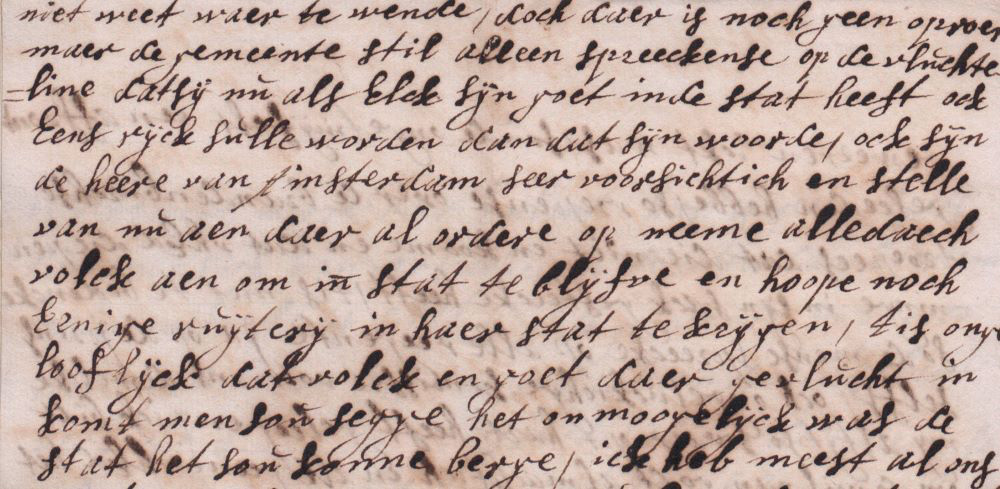 niet weet waer te wende, doch daer is noch geen oproer
maer de gemeente stil alleen spreeckense op de vluchte
=line datsÿ nu als Elck sÿn goet inde stat heeft ock
Eens rÿck sulle worden dan dat sÿn woorde, ock sÿn
de heere van Amsterdam seer voorsichtich en stelle
van nu aen daer al ordere op neeme alledaech
volck aen om in stat te blÿfve en hoope noch
Eenige ruÿterÿ in haer stat te krÿgen, tis onge
looflÿck dat volck en goet daer gevlucht in
komt men soú segge het onmoogelÿck was de
stat het soú konne berge, ick heb meest al ons